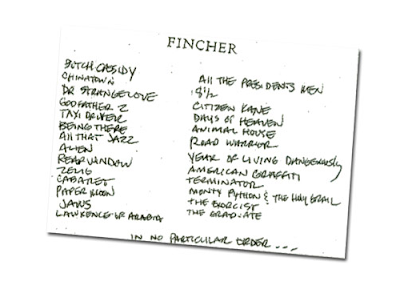 FINCHER
BUTCH CASSIDY
CHINATOWN
DR STRANGELOVE
GODFATHER 2
TAXI DRIVER
BEING THERE
ALL THAT JAZZ
ALIEN
REAR WINDOW
ZELIG
CABARET
PAPER MOON
JAWS
LAWRENCE OF ARABIA
ALL THE PRESIDENTS MEN
8½
CITIZEN KANE
DAYS OF HEAVEN
ANIMAL HOUSE
ROAD WARRIOR
YEAR OF LIVING DANGEROUSLY
AMERICAN GRAFFITI
TERMINATOR
MONTY PYTHON & THE HOLY GRAIL
THE EXORCIST
THE GRADUATE
IN NO PARTICULAR ORDER...